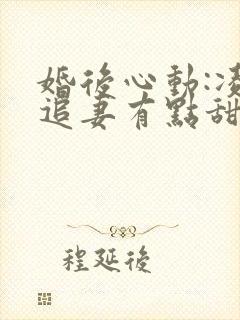 婚後心動:凌
追妻有點甜
程延後